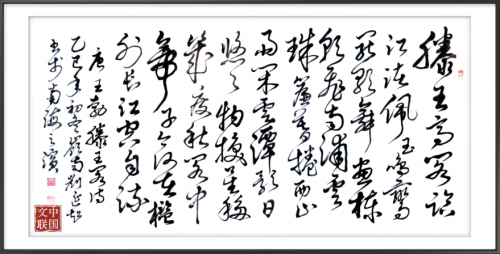 滕王高阁临
江渚佩玉鸣鸾
罢歌舞画栋
朝飞南浦云
珠帘暮捲西山
雨闲云潭影日
悠悠物换星移
几度秋阁中
帝子今何在槛
外长江空自流
唐王勃滕王阁诗
乙巳年初冬岭南刘延
书于南海之滨
中国
文联